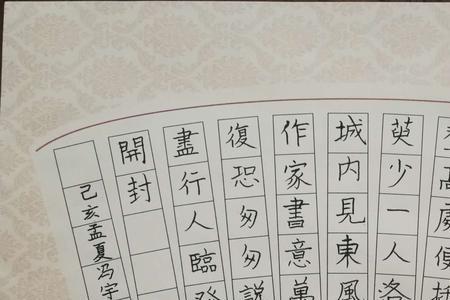 高處便插
萸少一人洛
城內見東風
作家書意萬
復恐匆匆說
盡行人臨發
開封
己亥孟夏冯宇